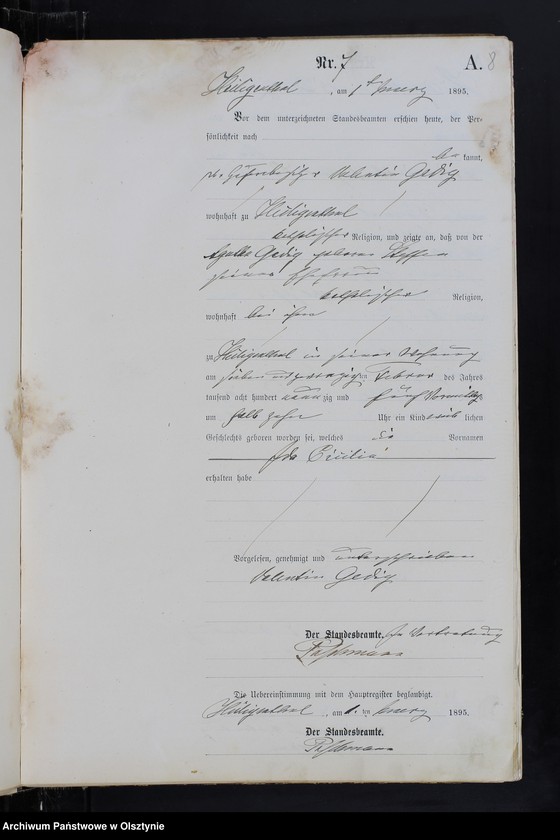 Nr. 7 A. 8
Heiligenthal, am 1ten Maerz 1895.
Vor dem unterzeichneten Standesbeamten erschien heute, der Per-
sönlichkeit nach
be kannt,
Valentin Gedig
wohnhaft zu Heiligenthal
katholischer Religion, und zeigte an, daß von der
Agathe Gedig geborene
seiner Ehefrau
katholischer Religion,
wohnhaft bei ihm
zu Heiligenthal in seiner Wohnung
am sieben und zwanzigsten Februar des Jahres
tausend acht hundert neunzig und fünf Vormittags
um halb zehn Uhr ein Kind weiblichen
Geschlechts geboren worden sei, welches die Vornamen
Ida Cecilia
erhalten habe
Vorgelesen, genehmigt und unterschrieben
Valentin Gedig
Der Standesbeamte. In Vertretung
Die Uebereinstimmung mit dem Hauptregister beglaubigt.
Heiligenthal, am 1. ten Maerz 1895.
Der Standesbeamte.
Archiwum Państwowe w Olsztynie